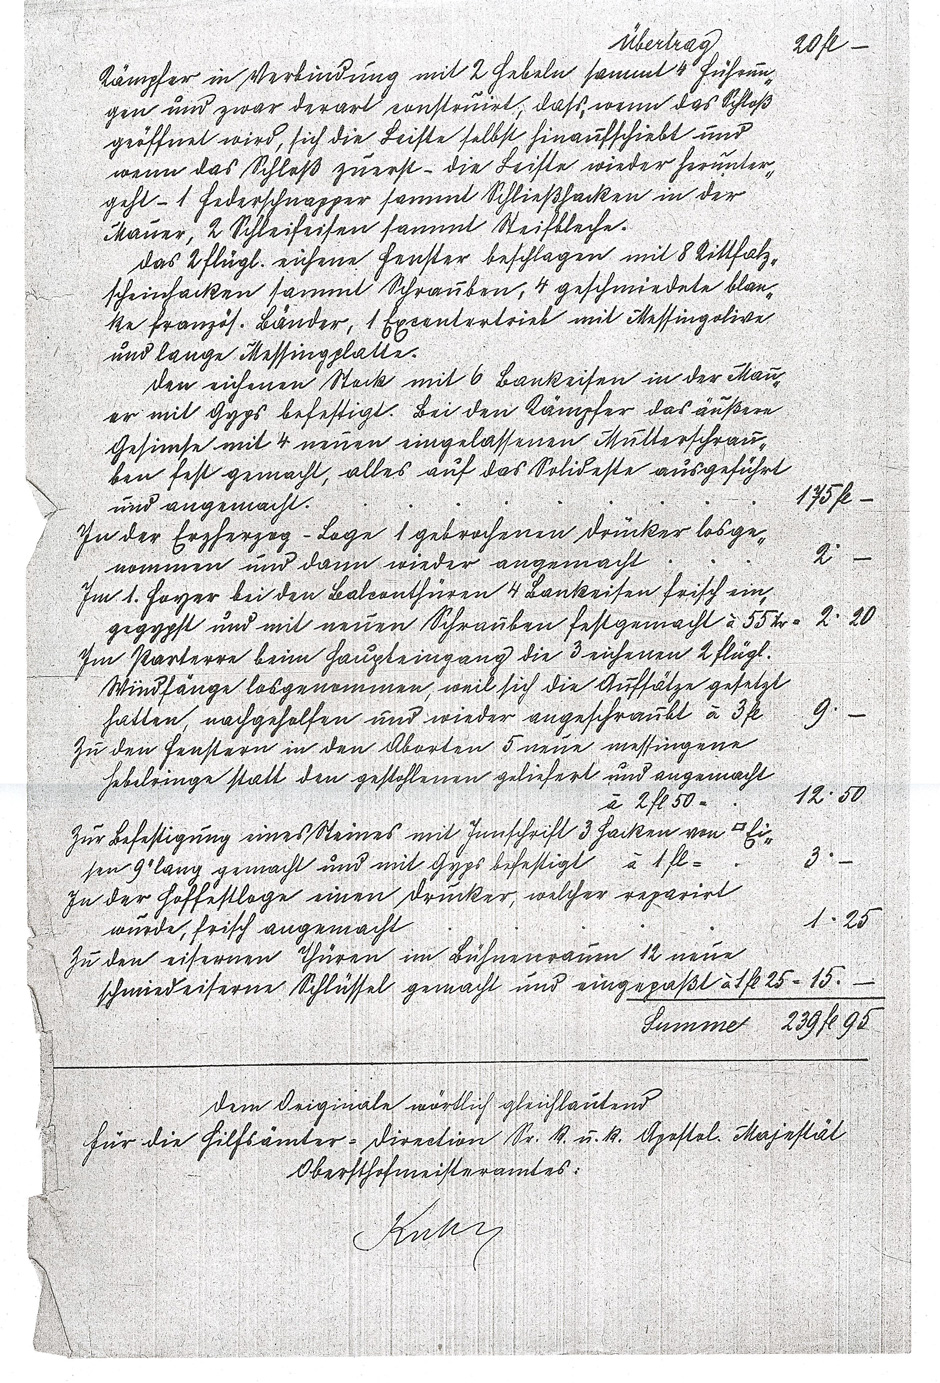 Übertrag 20 fl —
Kämpfer in Verbindung mit 2 Hebeln sammt 4 Führun„
gen und zwar derart construirt, dass, wenn das Schloß
geöffnet wird, sich die Leiste selbst hinaufschiebt und
wenn das Schloß zuerst - die Leiste wieder herunter„
geht - 1 Federschnapper sammt Schließhacken in der
Mauer, 2 Schleifeisen sammt Streifbleche.
Das 2 flügl. eichene Fenster beschlagen mit 8 Kittfalz„
scheinhacken sammt Schrauben, 4 geschmiedete blan„
ke französ. Bänder, 1 Excentertrieb mit Messingolive
und lange Messingplatte.
Den eichenen Stock mit 6 Bankeisen in der Mau„
er mit Gyps befestigt. Bei den Kämpfer das äußere
Gesimse mit 4 neuen eingelassenen Mutterschrau„
ben fest gemacht, alles auf das Solideste ausgeführt
und angemacht. 175 fl —
In der Erzherzog - Loge 1 gebrochenen Drücker losge„
nommen und dann wieder angemacht 2 · —
Im 1. Foyer bei den Balconthüren 4 Bankeisen frisch ein„
gegypst und mit neuen Schrauben festgemacht à 55 kr = 2 · 20
Im Parterre beim Haupteingang die 3 eichenen 2 flügl.
Windfänge losgenommen, weil sich die Aufsätze gesetzt
hatten, nachgeholfen und wieder angeschraubt à 3 fl 9 · —
Zu den Fenstern in den Aborten 5 neue messingene
Hebelringe statt den gestohlenen geliefert und angemacht
à 2 fl 50 = 12 · 50
Zur Befestigung eines Steines mit Innschrift 3 Hacken von □ Ei„
sen 9" lang gemacht und mit Gyps befestigt à 1 fl = 3 · —
In der Hoffestloge einen Drucker, welcher reparirt
wurde, frisch angemacht 1 · 25
Zu den eisernen Thüren im Bühnenraum 12 neue
schmiedeiserne Schlüssel gemacht und eingepaßt à 1 fl 25 = 15 · —
Summe 239 fl 95
Dem Originale wörtlich gleichlautend
Für die Hilfsämter = Direction Sr. k. u. k. Apostol. Majestät
Obersthofmeisteramtes: